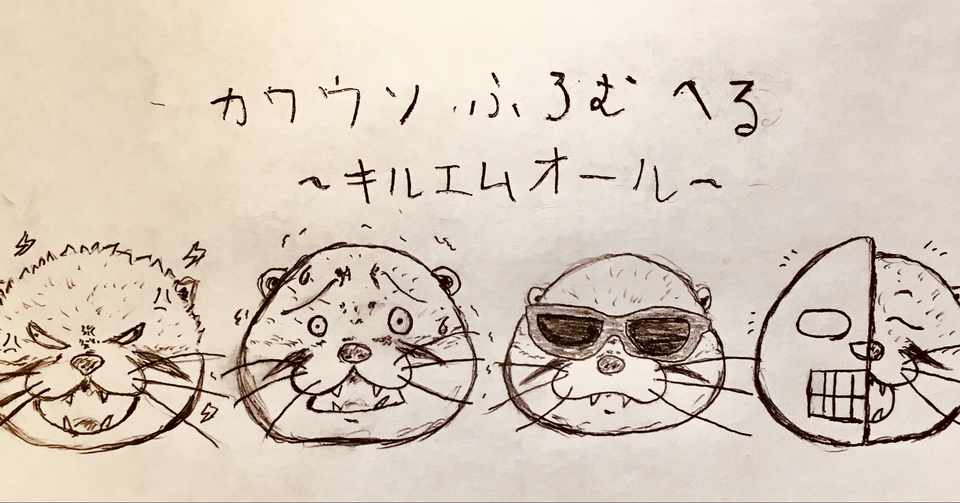 カワウソ ふろむ へる
～キルエムオール～